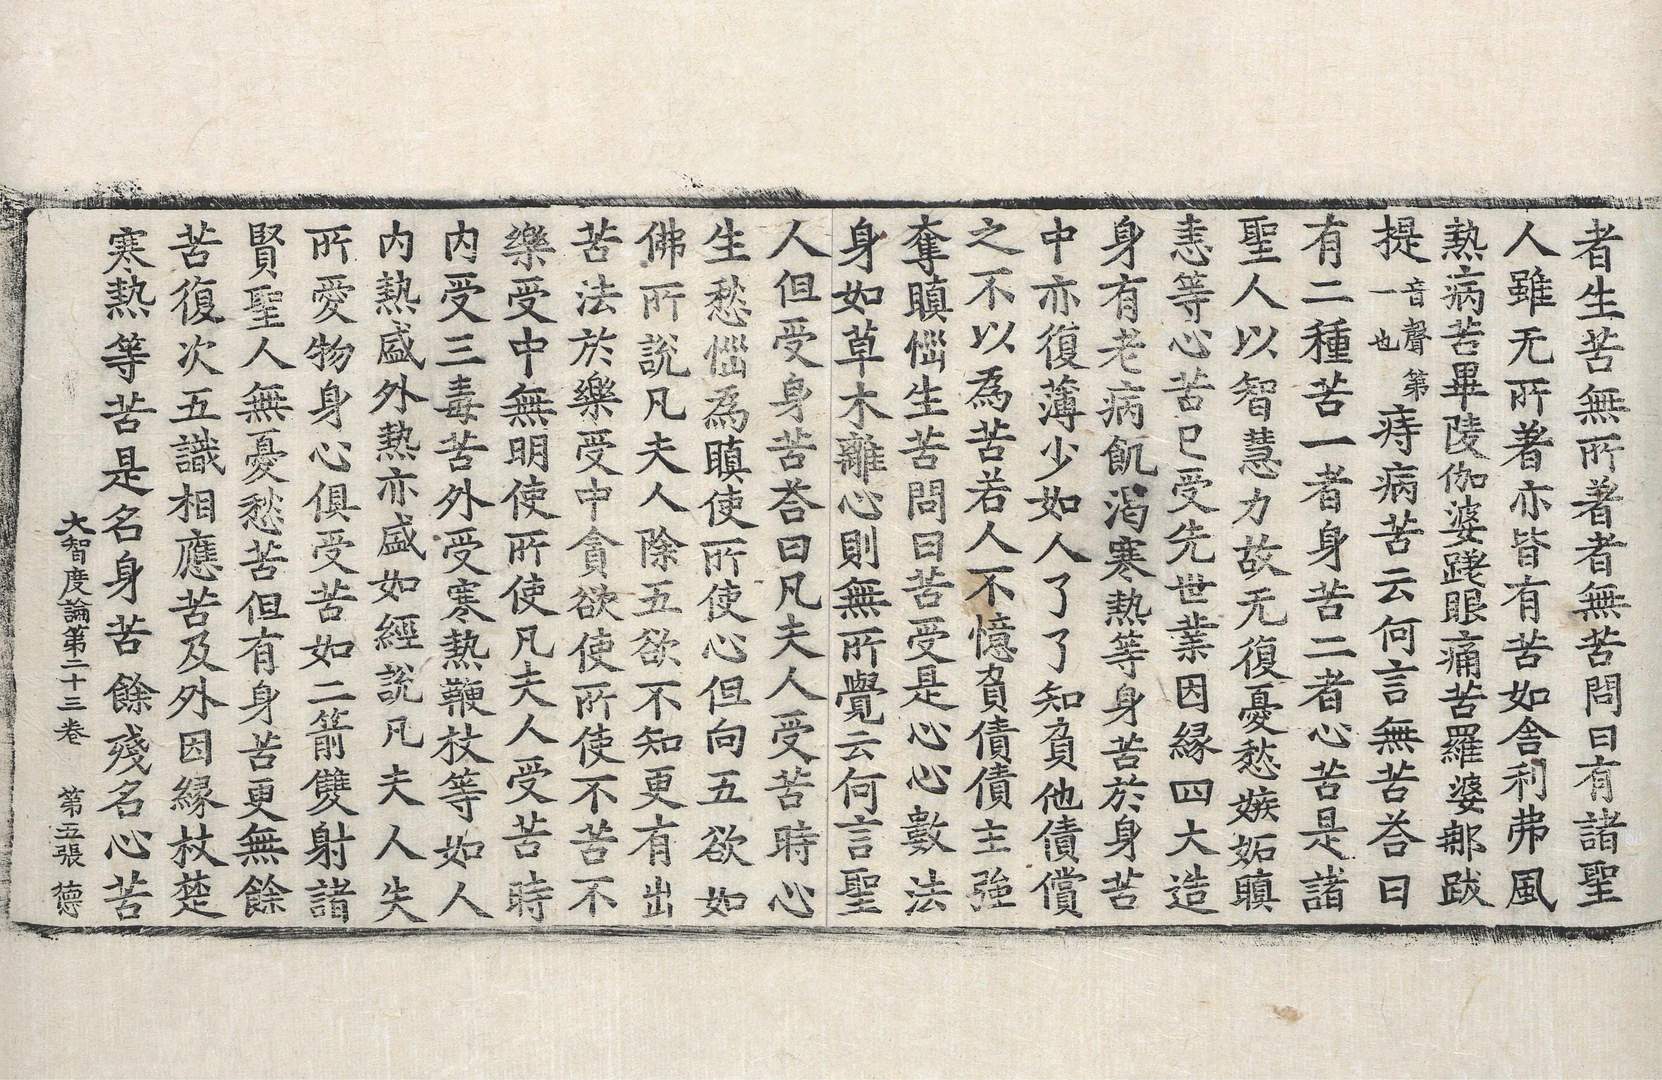 者生苦無所著者無苦問曰有諸聖
人雖无所著亦皆有苦如舍利弗風
熱病苦畢陵伽婆蹉眼痛苦羅婆那跋
提音聲第一也痔病苦云何言無苦荅曰
有二種苦一者身苦二者心苦是諸
聖人以智慧力故无復憂愁嫉妬瞋
恚等心苦已受先世業因緣四大造
身有老病飢渴寒熱等身苦於身苦
中亦復薄少如人了了知負他債償
之不以為苦若人不憶負債債主強
奪瞋惱生苦問曰苦受是心心數法
身如草木離心則無所覺云何言聖
人但受身苦荅曰凡夫人受苦時心
生愁惱為瞋使所使心但向五欲如
佛所說凡夫人除五欲不知更有出
苦法於樂受中貪欲使所使不苦不
樂受中無明使所使凡夫人受苦時
內受三毒苦外受寒熱鞭杖等如人
內熱盛外熱亦盛如經說凡夫人失
所愛物身心俱受苦如二箭雙射諸
賢聖人無憂愁苦但有身苦更無餘
苦復次五識相應苦及外因緣杖楚
寒熱等苦是名身苦餘殘名心苦
大智度論第二十三卷 第五張 德